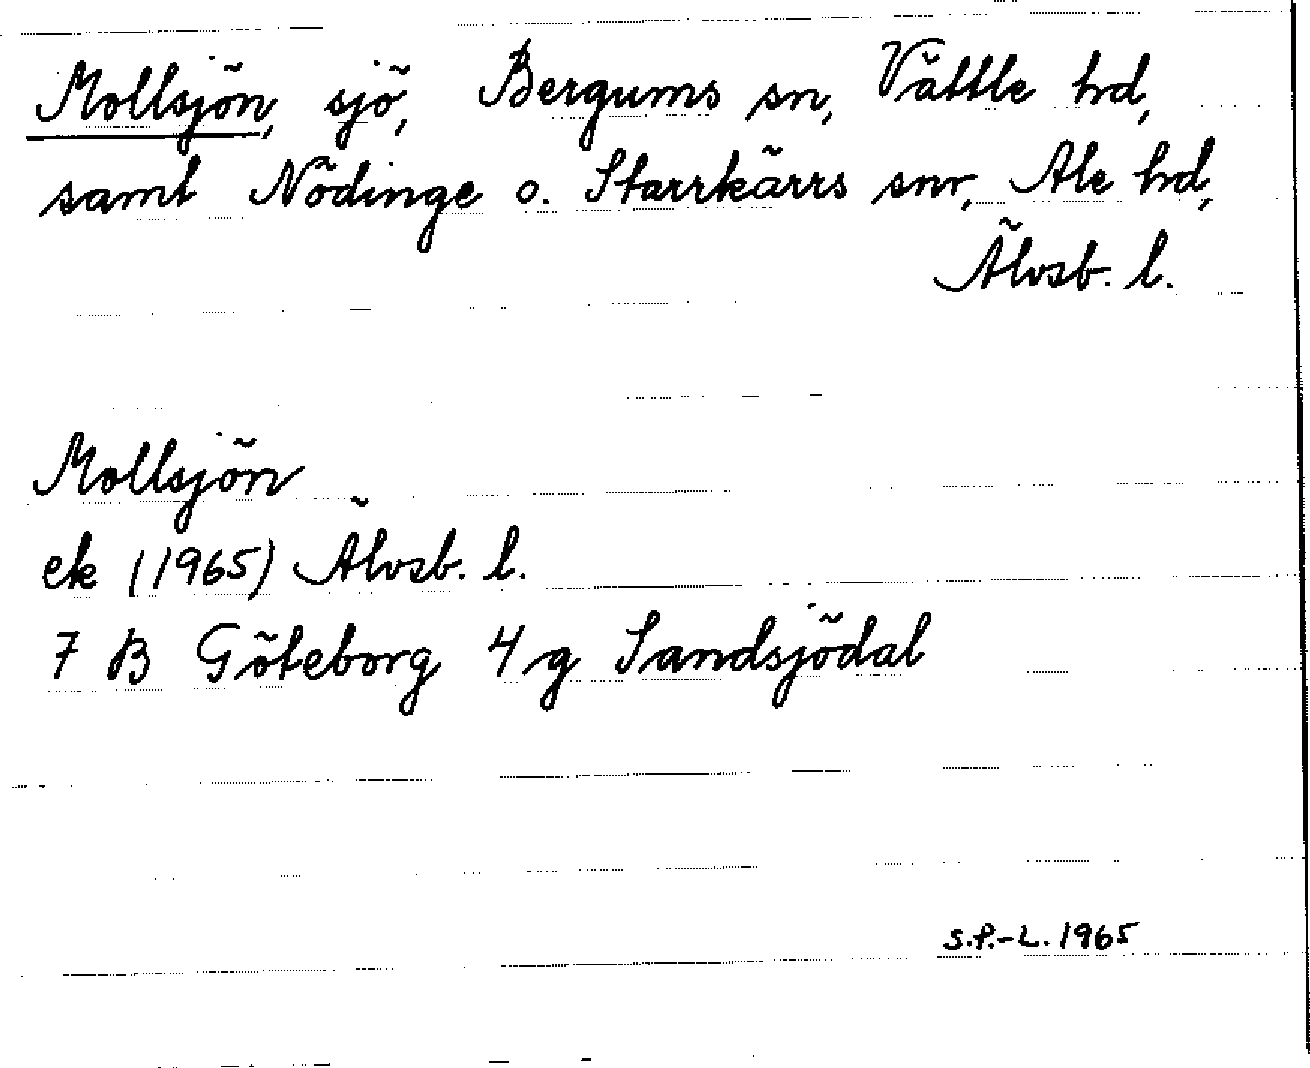 Mollsjön, sjö, Bergums sn, Vättle hd,
samt Nödinge o. Starrkärrs snr, Ale hd,
Älvsb. l.
Mollsjön
ek (1965) Älvsb. l.
7 B Göteborg 4 g Sandsjödal
S.P.-L. 1965